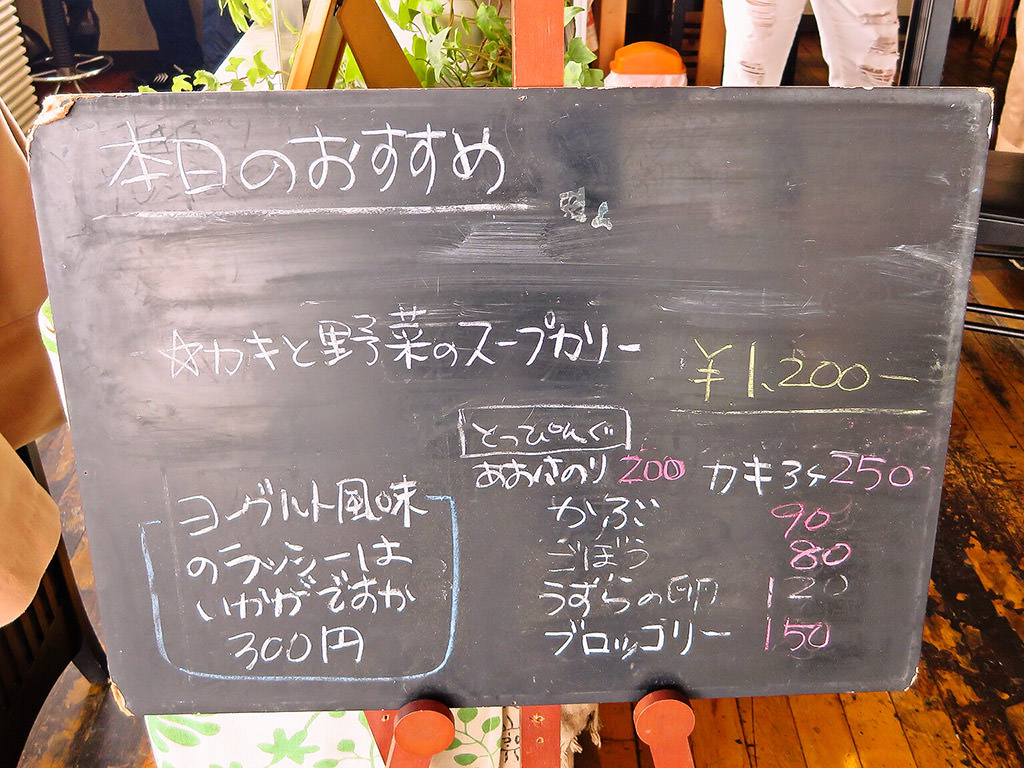 本日のおすすめ
☆カキと野菜のスープカリー ¥1,200ー
とっぴんぐ
あおさのり 200 カキ3ヶ 250
かぶ 90
ごぼう 80
うずらの卵 120
ブロッコリー 150
ヨーグルト風味
のラッシーは
いかがですか
300円